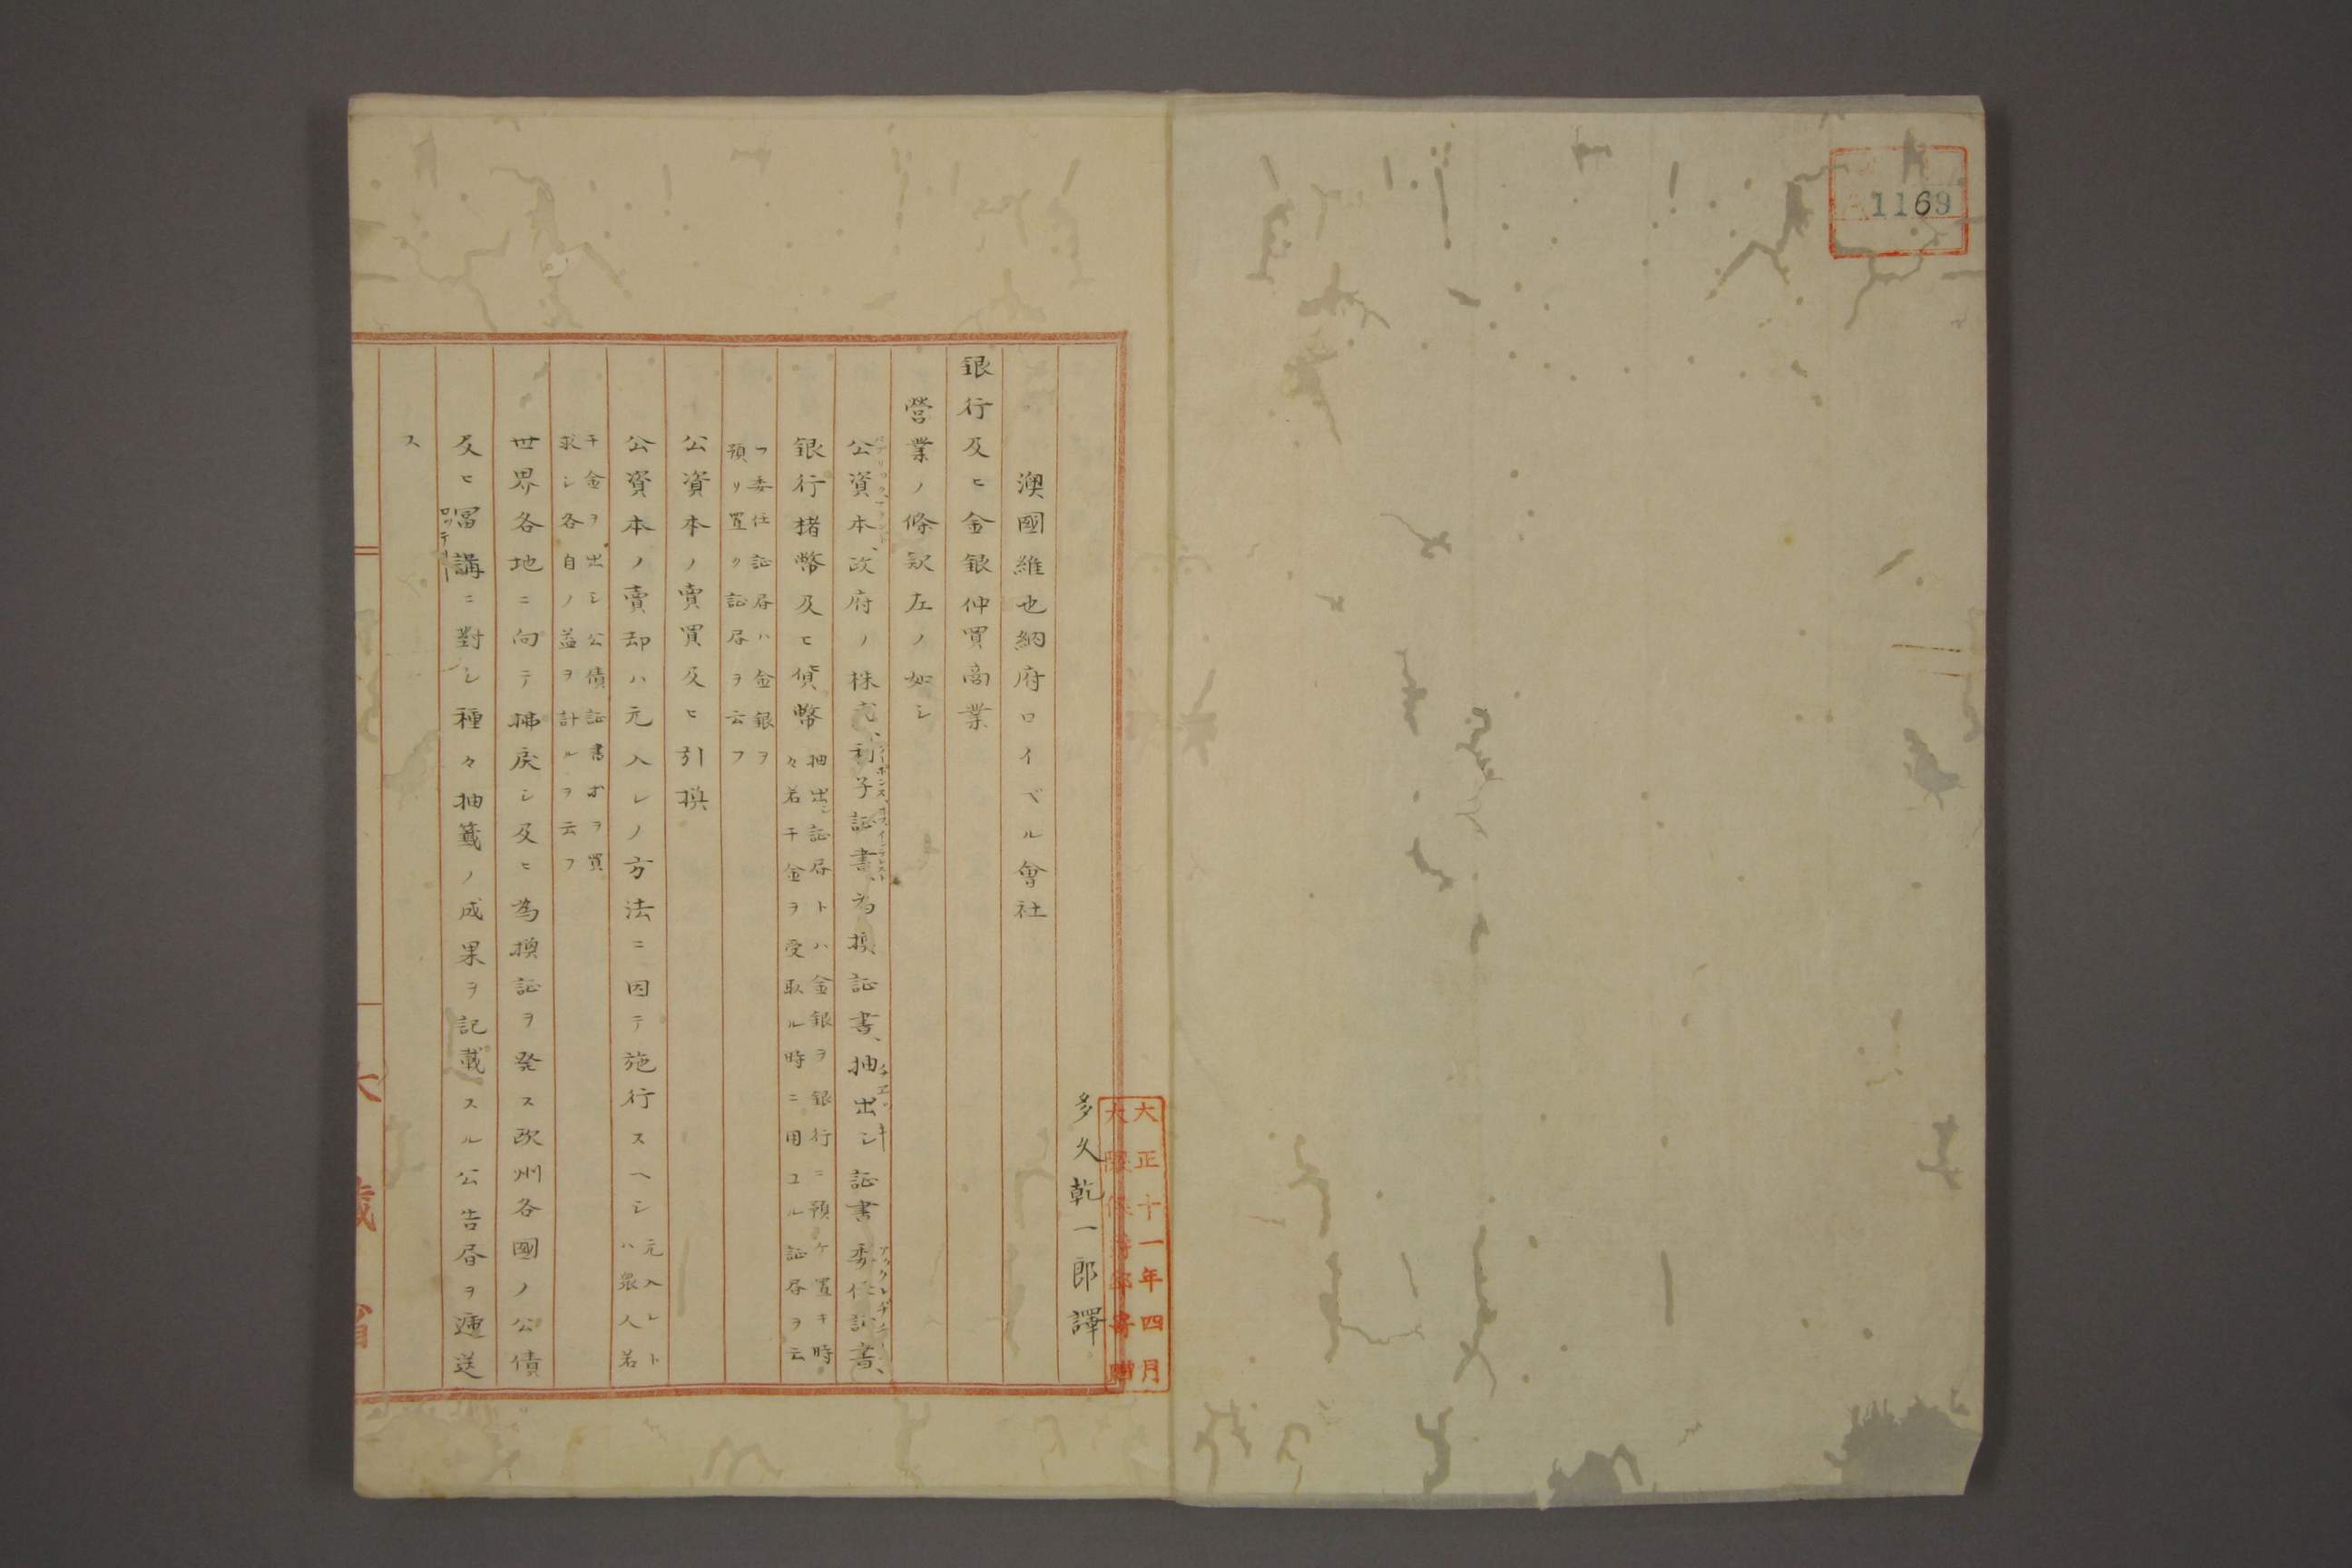 1169
大正十一年四月
大隈侯爵邸寄贈
多久乾一郎譯
澳國維也納府ロイベル會社
銀行及ヒ金銀仲買商業
營業ノ條欵左ノ如シ
公資本、政府ノ株式、利子証書、為換証書、抽出シ証書委任証書、
銀行楮幣及ヒ貨幣、抽出シ証居トハ金銀ヲ銀行ニ預ケ置キ時
々若干金ヲ受取ル時ニ用ユル証居ヲ云
フ委任証居ハ金銀ヲ
預リ置ク証居ヲ云フ
公資本ノ賣買及ヒ引換
公資本ノ賣却ハ元入レノ方法ニ因テ施行スヘシ元入レト
ハ衆人若
干金ヲ出シ公債証書ホヲ買
求シ各自ノ益ヲ計ルヲ云フ
世界各地ニ向テ拂戻シ及ヒ為換証ヲ発ス欧州各國ノ公債
及ヒ冨講ニ對シ種々抽籤ノ成果ヲ記載スル公告昏ヲ逓送
ス
大藏省